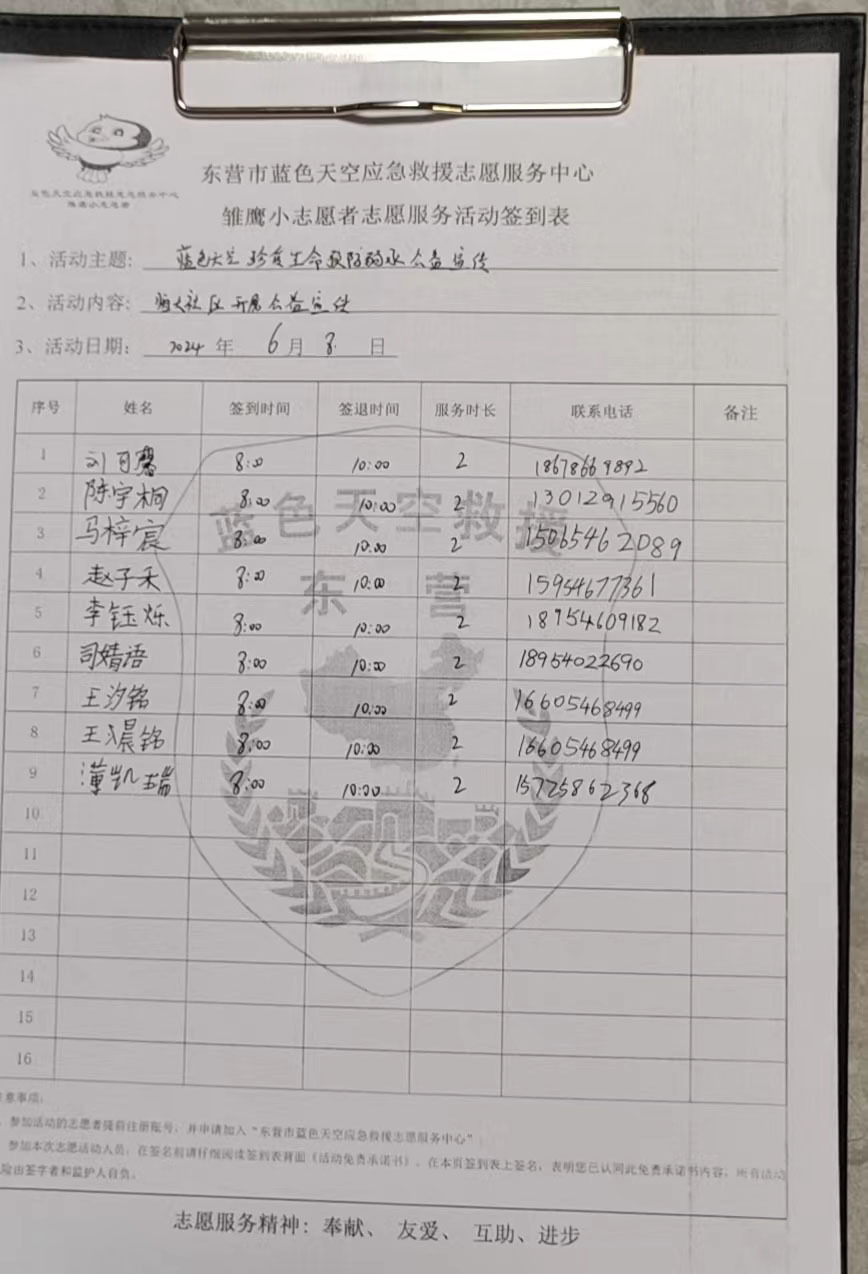 蓝色天空应急救援志愿服务中心
雏鹰小志愿者
东营市蓝色天空应急救援志愿服务中心
雏鹰小志愿者志愿服务活动签到表
1、活动主题: 蓝色天空 珍爱生命预防溺水公益宣传
2、活动内容: 社区开展公益宣传
3、活动日期: 2024 年 6 月 8 日
序号 姓名 签到时间 签退时间 服务时长 联系电话 备注
1 刘 8:00 10:00 2 18678669892
2 陈宇桐 8:00 10:00 2 13012915560
3 马梓宸 8:00 10:00 2 15065462089
4 赵子禾 8:00 10:00 2 15954677361
5 李钰烁 8:00 10:00 2 18954609182
6 司婧语 8:00 10:00 2 18954022690
7 王汐铭 8:00 10:00 2 16605468499
8 王晨铭 8:00 10:00 2 16605468499
9 凯瑞 8:00 10:00 2 15725862368
10
11
12
13
14
15
16
蓝色天空救援
东营
注意事项:
参加活动的志愿者提前注册账号,并申请加入“东营市蓝色天空应急救援志愿服务中心”
参加本次志愿活动人员,在签名前请仔细阅读签到表背面《活动免责承诺书》,在本页签到表上签名,表明您已认同此免责承诺书内容,所有活动
险由签字者和监护人自负。
志愿服务精神: 奉献、 友爱、 互助、进步